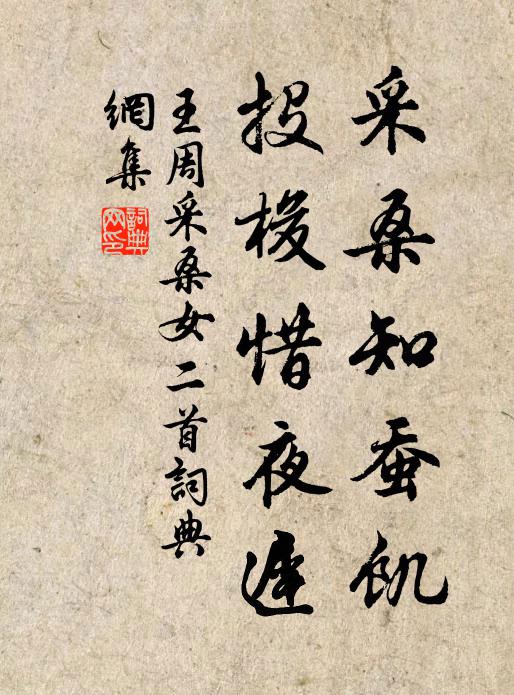 采桑知蚕饥
投梭惜夜遲
王周采桑女二首詞典
網集
詞典網印